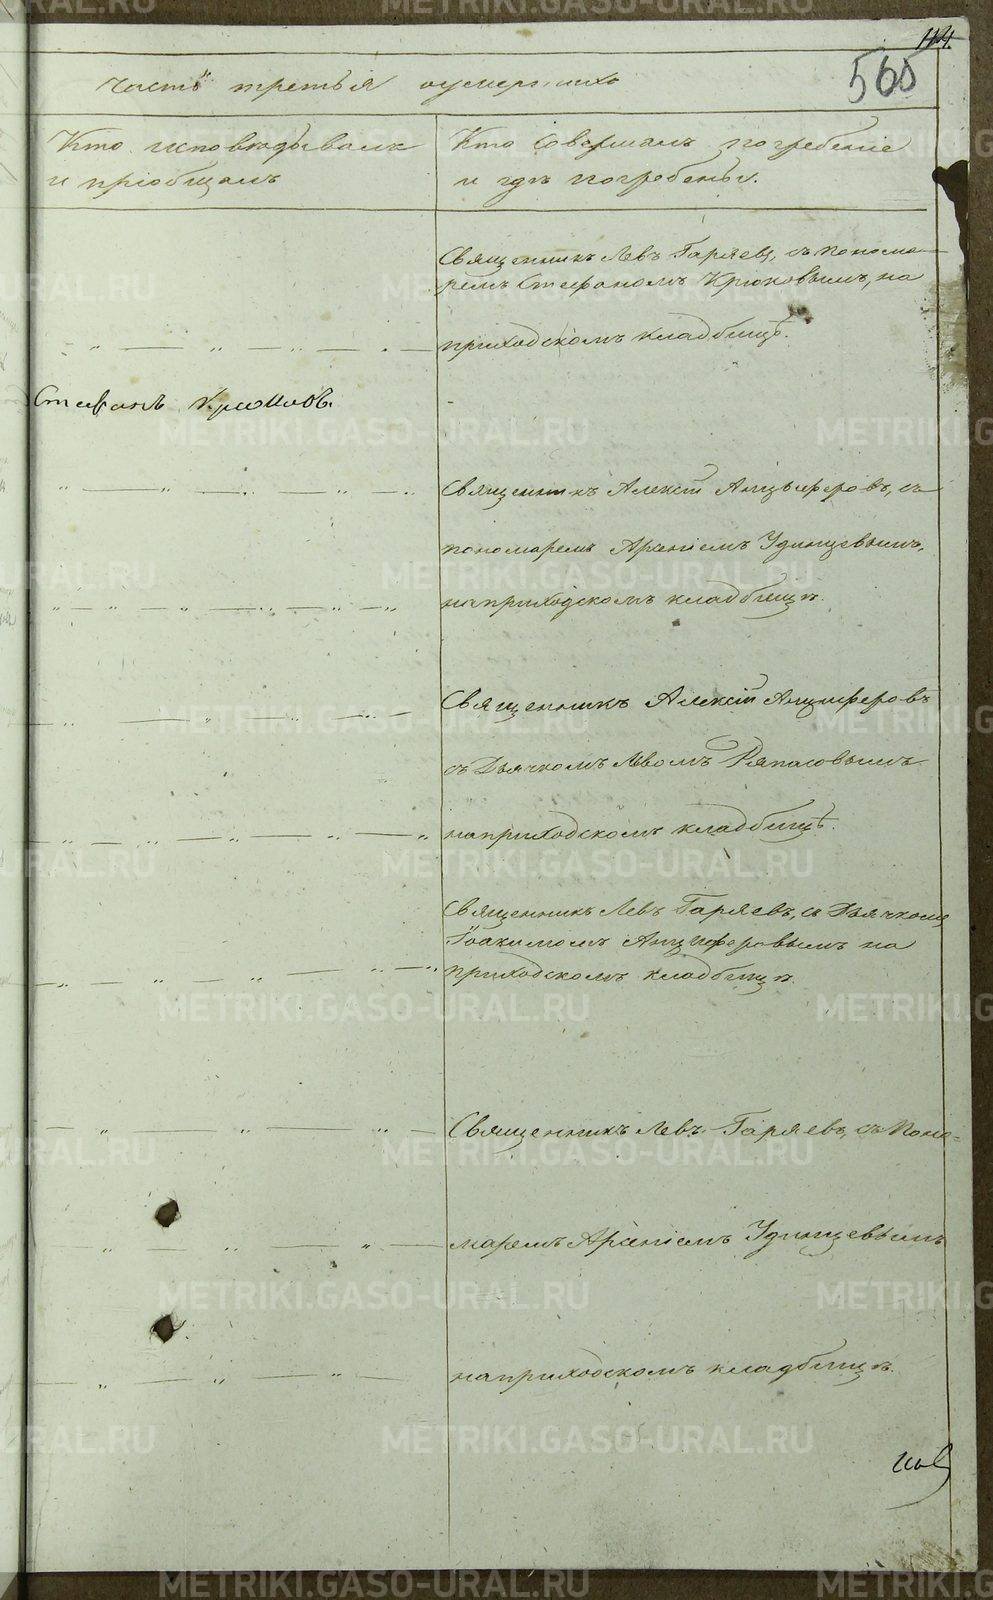 114.
565
Часть третья оумершихъ
Кто исповѣдывалъ
и пріобщалъ
Кто совершалъ погребеніе
и гдѣ погребены.
Священникъ Левъ Гаряевъ, съ понома-
ремъ Стефаномъ Крюковымъ, на
приходскомъ кладбищѣ.
Стефанъ Крюковъ.
Священникъ Алексій Анцыферовъ, съ
пономаремъ Арсеніемъ Удинцевымъ,
на приходскомъ кладбищѣ.
Священникъ Алексій Анциферовъ
съ Дьячкомъ Львомъ Ряпасовымъ
на приходскомъ кладбищѣ.
Священникъ Левъ Гаряевъ, съ Дьячкомъ
Іоакимомъ Анциферовымъ на
приходскомъ кладбищѣ.
Священникъ Левъ Гаряевъ, съ Поно-
маремъ Арсеніемъ Удинцевымъ
на приходскомъ кладбищѣ.
METRIKI.GASO-URAL.RU